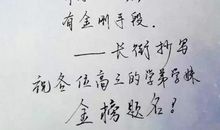 有金刚手段.
——长街抄写
祝各位高三的学弟学妹
金榜题名!